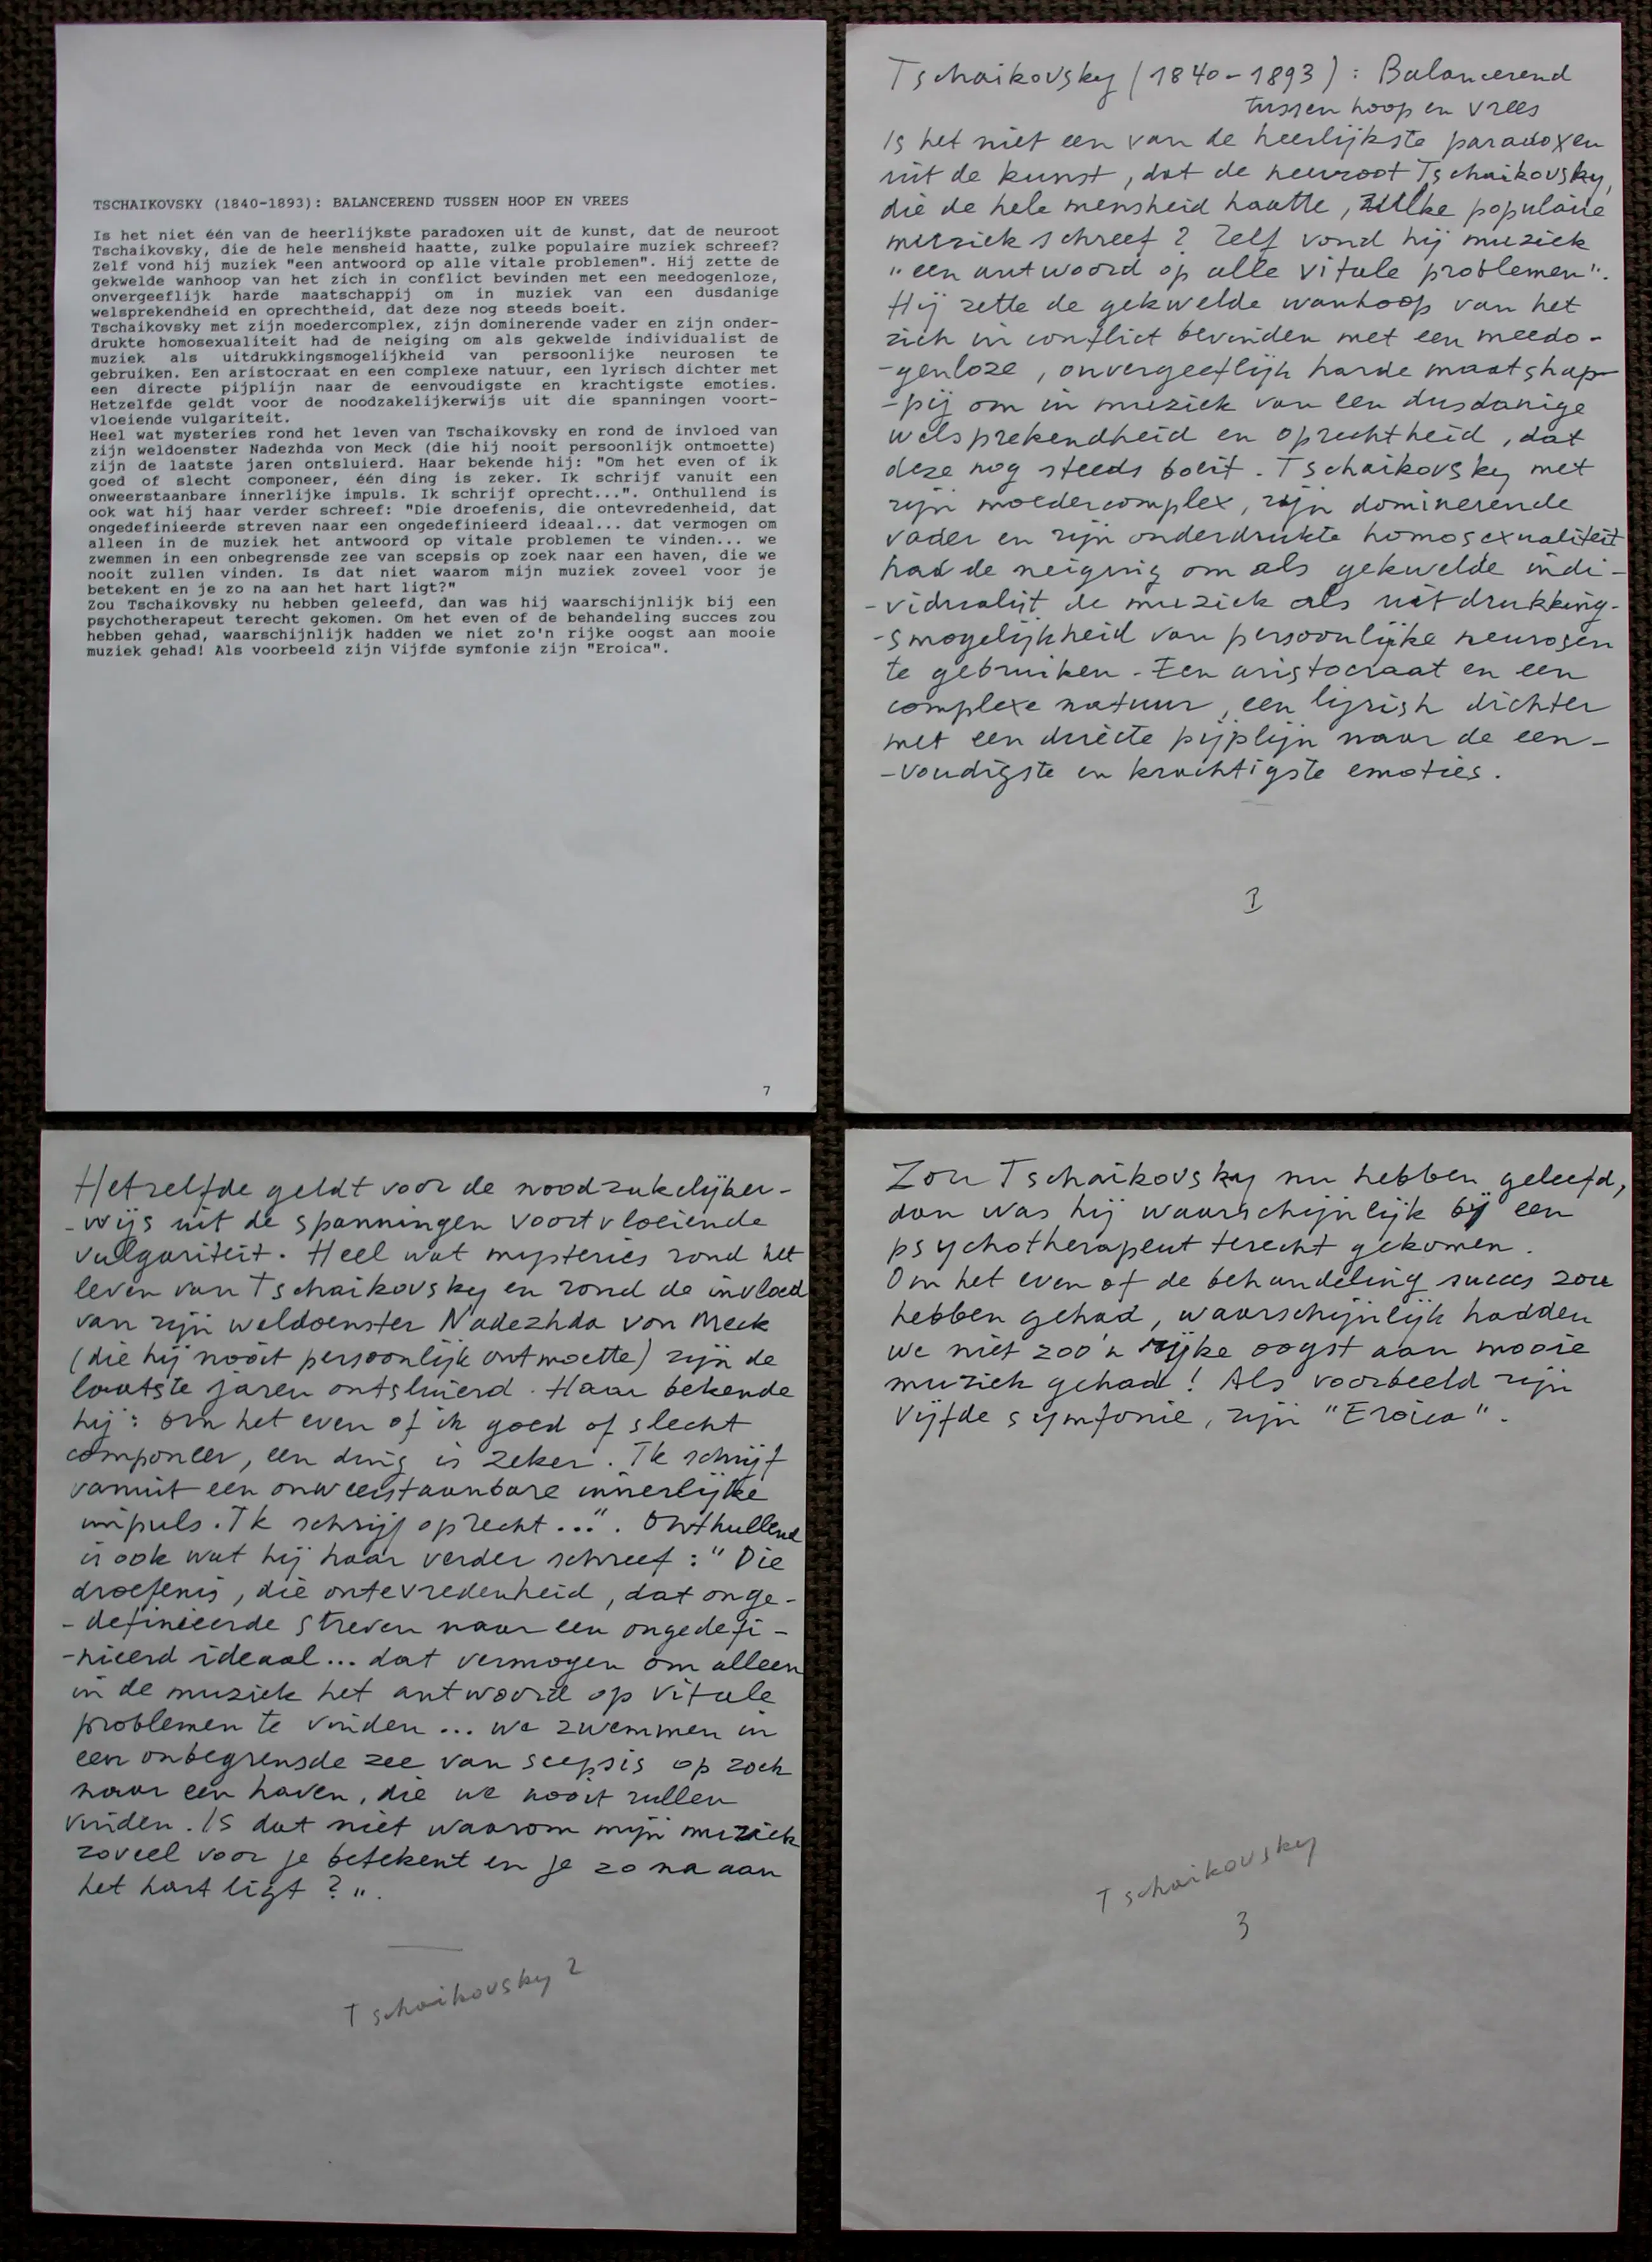 TSCHAIKOVSKY (1840-1893): BALANCEREND TUSSEN HOOP EN VREES
Is het niet één van de heerlijkste paradoxen uit de kunst, dat de neuroot
Tschaikovsky, die de hele mensheid haatte, zulke populaire muziek schreef?
Zelf vond hij muziek "een antwoord op alle vitale problemen". Hij zette de
gekwelde wanhoop van het zich in conflict bevinden met een meedogenloze,
onvergeeflijk harde maatschappij om in muziek van een dusdanige
welsprekendheid en oprechtheid, dat deze nog steeds boeit.
Tschaikovsky met zijn moedercomplex, zijn dominerende vader en zijn onder-
drukte homosexualiteit had de neiging om als gekwelde individualist de
muziek als uitdrukkingsmogelijkheid van persoonlijke neurosen te
gebruiken. Een aristocraat en een complexe natuur, een lyrisch dichter met
een directe pijplijn naar de eenvoudigste en krachtigste emoties.
Hetzelfde geldt voor de noodzakelijkerwijs uit die spanningen voort-
vloeiende vulgariteit.
Heel wat mysteries rond het leven van Tschaikovsky en rond de invloed van
zijn weldoenster Nadezhda von Meck (die hij nooit persoonlijk ontmoette)
zijn de laatste jaren ontsluierd. Haar bekende hij: "Om het even of ik
goed of slecht componeer, één ding is zeker. Ik schrijf vanuit een
onweerstaanbare innerlijke impuls. Ik schrijf oprecht...". Onthullend is
ook wat hij haar verder schreef: "Die droefenis, die ontevredenheid, dat
ongedefinieerde streven naar een ongedefinieerd ideaal... dat vermogen om
alleen in de muziek het antwoord op vitale problemen te vinden... we
zwemmen in een onbegrensde zee van scepsis op zoek naar een haven, die we
nooit zullen vinden. Is dat niet waarom mijn muziek zoveel voor je
betekent en je zo na aan het hart ligt?"
Zou Tschaikovsky nu hebben geleefd, dan was hij waarschijnlijk bij een
psychotherapeut terecht gekomen. Om het even of de behandeling succes zou
hebben gehad, waarschijnlijk hadden we niet zo'n rijke oogst aan mooie
muziek gehad! Als voorbeeld zijn Vijfde symfonie zijn "Eroica".
7
Tschaikovsky (1840-1893) : Balancerend
tussen hoop en vrees
Is het niet een van de heerlijkste paradoxen
uit de kunst, dat de neuroot Tschaikovsky,
die de hele mensheid haatte, zulke populaire
muziek schreef ? Zelf vond hij muziek
"een antwoord op alle vitale problemen".
Hij zette de gekwelde wanhoop van het
zich in conflict bevinden met een meedo-
-genloze, onvergeeflijk harde maatshap-
-pij om in muziek van een dusdanige
welsprekendheid en oprechtheid, dat
deze nog steeds boeit. Tschaikovsky met
zijn moedercomplex, zijn dominerende
vader en zijn onderdrukte homosexualiteit
had de neiging om als gekwelde indi-
-vidualist de muziek als uitdrukking-
-smogelijkheid van persoonlijke neurosen
te gebruiken. Een aristocraat en een
complexe natuur, een lyrish dichter
met een directe pijplijn naar de een-
-voudigste en krachtigste emoties.
1
Hetzelfde geldt voor de noodzakelijker-
-wijs uit de spanningen voortvloeiende
vulgariteit. Heel wat mysteries rond het
leven van Tschaikovsky en rond de invloed
van zijn weldoenster Nadezhda von Meck
(die hij nooit persoonlijk ontmoette) zijn de
laatste jaren ontsluierd. Haar bekende
hij: om het even of ik goed of slecht
componeer, een ding is zeker. Ik schrijf
vanuit een onweerstaanbare innerlijke
impuls. Ik schrijf oprecht...". Onthullend
is ook wat hij haar verder schreef : "Die
droefenis, die ontevredenheid, dat onge-
-definieerde streven naar een ongedefi-
-nieerd ideaal... dat vermogen om alleen
in de muziek het antwoord op vitale
problemen te vinden... we zwemmen in
een onbegrensde zee van scepsis op zoek
naar een haven, die we nooit zullen
vinden. Is dat niet waarom mijn muziek
zoveel voor je betekent en je zo na aan
het hart ligt ?".
Tschaikovsky 2
Zou Tschaikovsky nu hebben geleefd,
dan was hij waarschijnlijk bij een
psychotherapeut terecht gekomen.
Om het even of de behandeling succes zou
hebben gehad, waarschijnlijk hadden
we niet zoo'n rijke oogst aan mooie
muziek gehad! Als voorbeeld zijn
Vijfde symfonie, zijn "Eroica".
Tschaikovsky
3